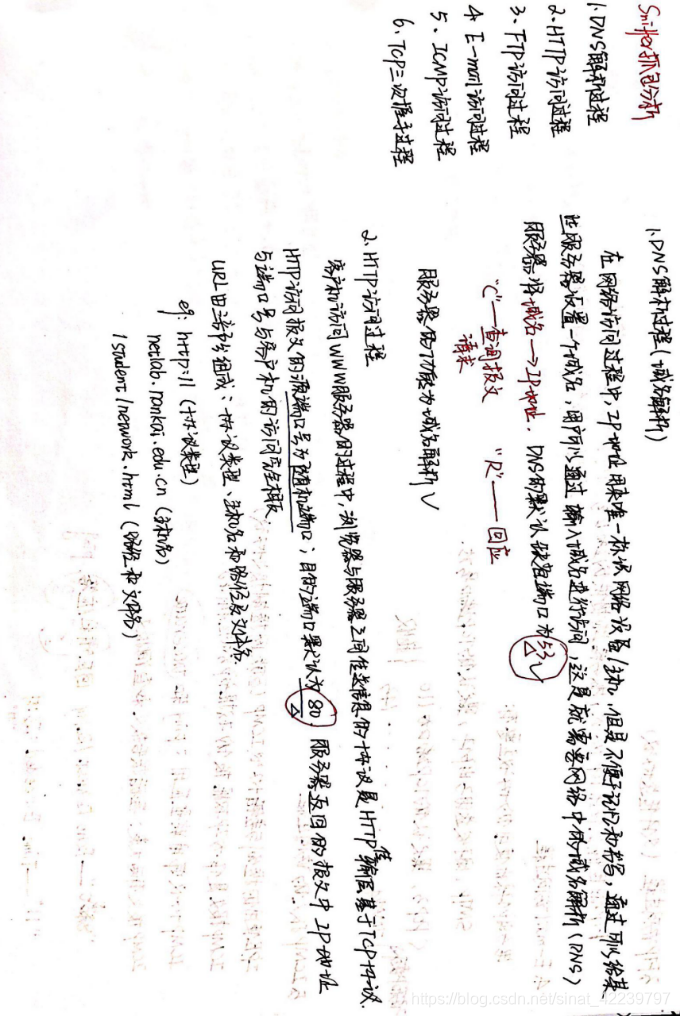 Sniffer抓包分析
1.DNS解析过程
2.HTTP访问过程
3.FTP访问过程
4.E-mail访问过程
5.ICMP访问过程
6.TCP三次握手过程
1.DNS解析过程(域名解析)
在网络访问过程中,IP地址用来唯一标识网络设备/主机,但是不便于记忆和书写,通过可以给某
些服务器设置一个域名,用户可以通过输入域名进行访问,这是就需要网络中的域名解析(DNS)
服务器将域名→IP地址.DNS的默认缺省端口为53√
"C"—查询报文 "R"——回应
请求
服务器的功能为域名解析√
2.HTTP访问过程
客户机访问WWW服务器的过程中,浏览器与服务器之间传送信息的协议是HTTP传输层基于TCP协议.
HTTP访问报文的源端口号为随机端口;目的端口默认为80 服务器返回的报文中IP地址
与端口号与客户机的访问完全相反.
URL由三部分组成:协议类型、主机名和路径及文件名.
eg: http:// (协议类型)
netlab.nankai.edu.cn (主机名)
/student/network.html (路径和文件名)
https://blog.csdn.net/sinat_42239797